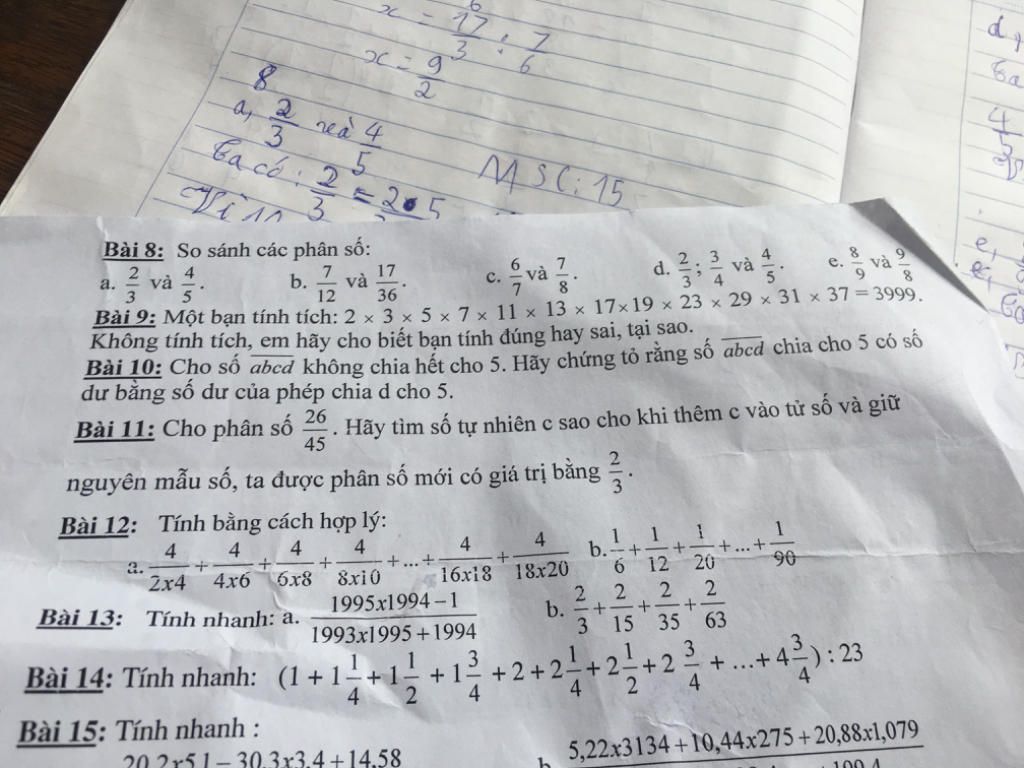 x = 17/3 : 7/6
x = 9/2
8
a, 2/3 và 4/5
Ta có : 2/3 = 2·5
MSC: 15
Bài 8: So sánh các phân số:
a. 2/3 và 4/5. b. 7/12 và 17/36. c. 6/7 và 7/8. d. 2/3; 3/4 và 4/5. e. 8/9 và 9/8
Bài 9: Một bạn tính tích: 2 × 3 × 5 × 7 × 11 × 13 × 17 × 19 × 23 × 29 × 31 × 37 = 3999.
Không tính tích, em hãy cho biết bạn tính đúng hay sai, tại sao.
Bài 10: Cho số a̅b̅c̅d̅ không chia hết cho 5. Hãy chứng tỏ rằng số a̅b̅c̅d̅ chia cho 5 có số
dư bằng số dư của phép chia d cho 5.
Bài 11: Cho phân số 26/45. Hãy tìm số tự nhiên c sao cho khi thêm c vào tử số và giữ
nguyên mẫu số, ta được phân số mới có giá trị bằng 2/3.
Bài 12: Tính bằng cách hợp lý:
a. 4/2x4 + 4/4x6 + 4/6x8 + 4/8x10 + ... + 4/16x18 + 4/18x20 b. 1/6 + 1/12 + 1/20 + ... + 1/90
Bài 13: Tính nhanh: a. 1995x1994 – 1/1993x1995 + 1994 b. 2/3 + 2/15 + 2/35 + 2/63
Bài 14: Tính nhanh: (1 + 1 1/4 + 1 1/2 + 1 3/4 + 2 + 2 1/4 + 2 1/2 + 2 3/4 + ... + 4 3/4) : 23
Bài 15: Tính nhanh :
20,2x5,1 – 30,3x3,4 + 14,58
5,22x3134 + 10,44x275 + 20,88x1,079